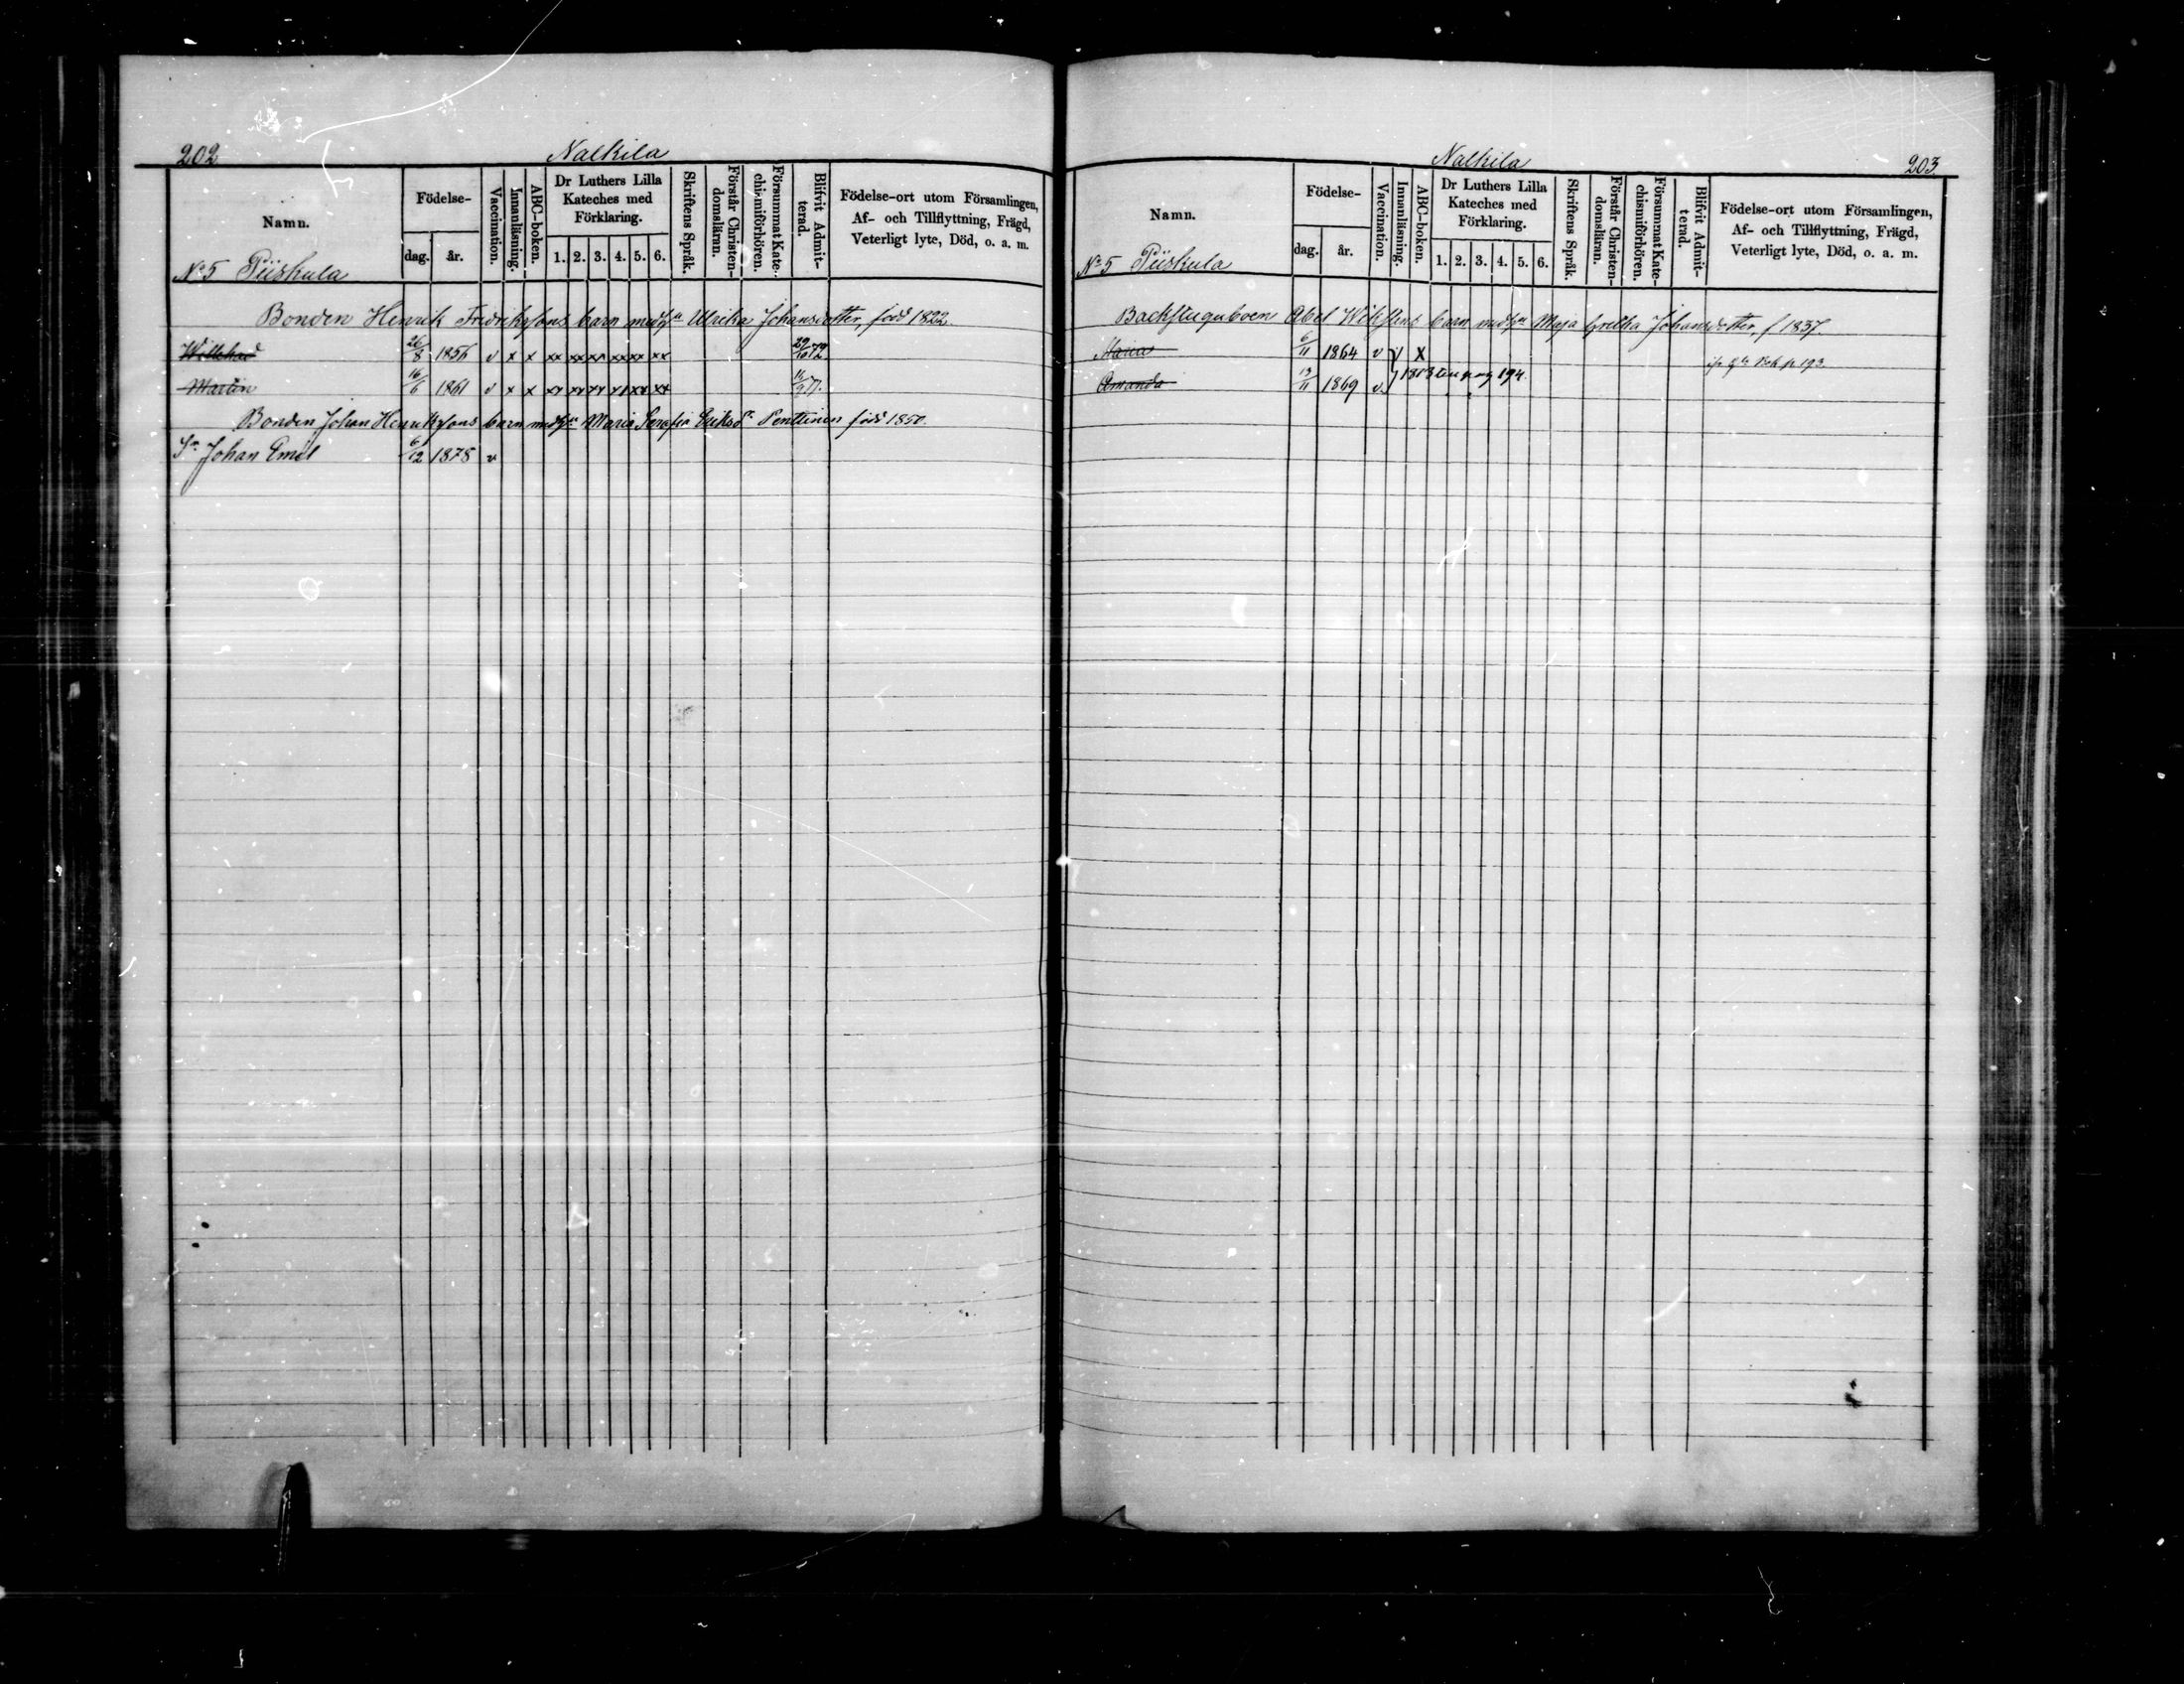 202
Nalkila
Namn.
Födelse-
dag. år.
Vaccination.
Innanläsning.
ABC-boken.
Dr Luthers Lilla
Kateches med
Förklaring.
1. 2. 3. 4. 5. 6.
Skriftens Språk.
Förstår Christen-
domsläran.
Försummat Kate-
chismiförhören.
Blifvit Admit-
terad.
Födelse-ort utom Församlingen,
Af- och Tillflyttning, Frägd,
Veterligt lyte, Död, o. a. m.
No 5 Piiskula
Bonden Henrik Fredrikssons barn med hu Ulrika Johansdotter, född 1822.
Willehad 26/8 1856 v x x xx xx xx xx xx xx 29/10 72.
Martin 16/6 1861 v x x xx xx xx xx xx xx 16/9 77.
Bonden Johan Henrikssons barn med hu Maria Serafia Eriksdr Penttinen född 1850.
Sn Johan Emil 6/12 1878 v
Nalkila
203.
Namn.
Födelse-
dag. år.
Vaccination.
Innanläsning.
ABC-boken.
Dr Luthers Lilla
Kateches med
Förklaring.
1. 2. 3. 4. 5. 6.
Skriftens Språk.
Förstår Christen-
domsläran.
Försummat Kate-
chismiförhören.
Blifvit Admit-
terad.
Födelse-ort utom Församlingen,
Af- och Tillflyttning, Frägd,
Veterligt lyte, Död, o. a. m.
No 5 Piiskula
Backstuguboen Abel Wikstens barn med hu Maja Gretha Johansdotter, f 1837.
Maria 6/11 1864 v v x
Amanda 13/11 1869 v. 1873 pag 194. p. 193.